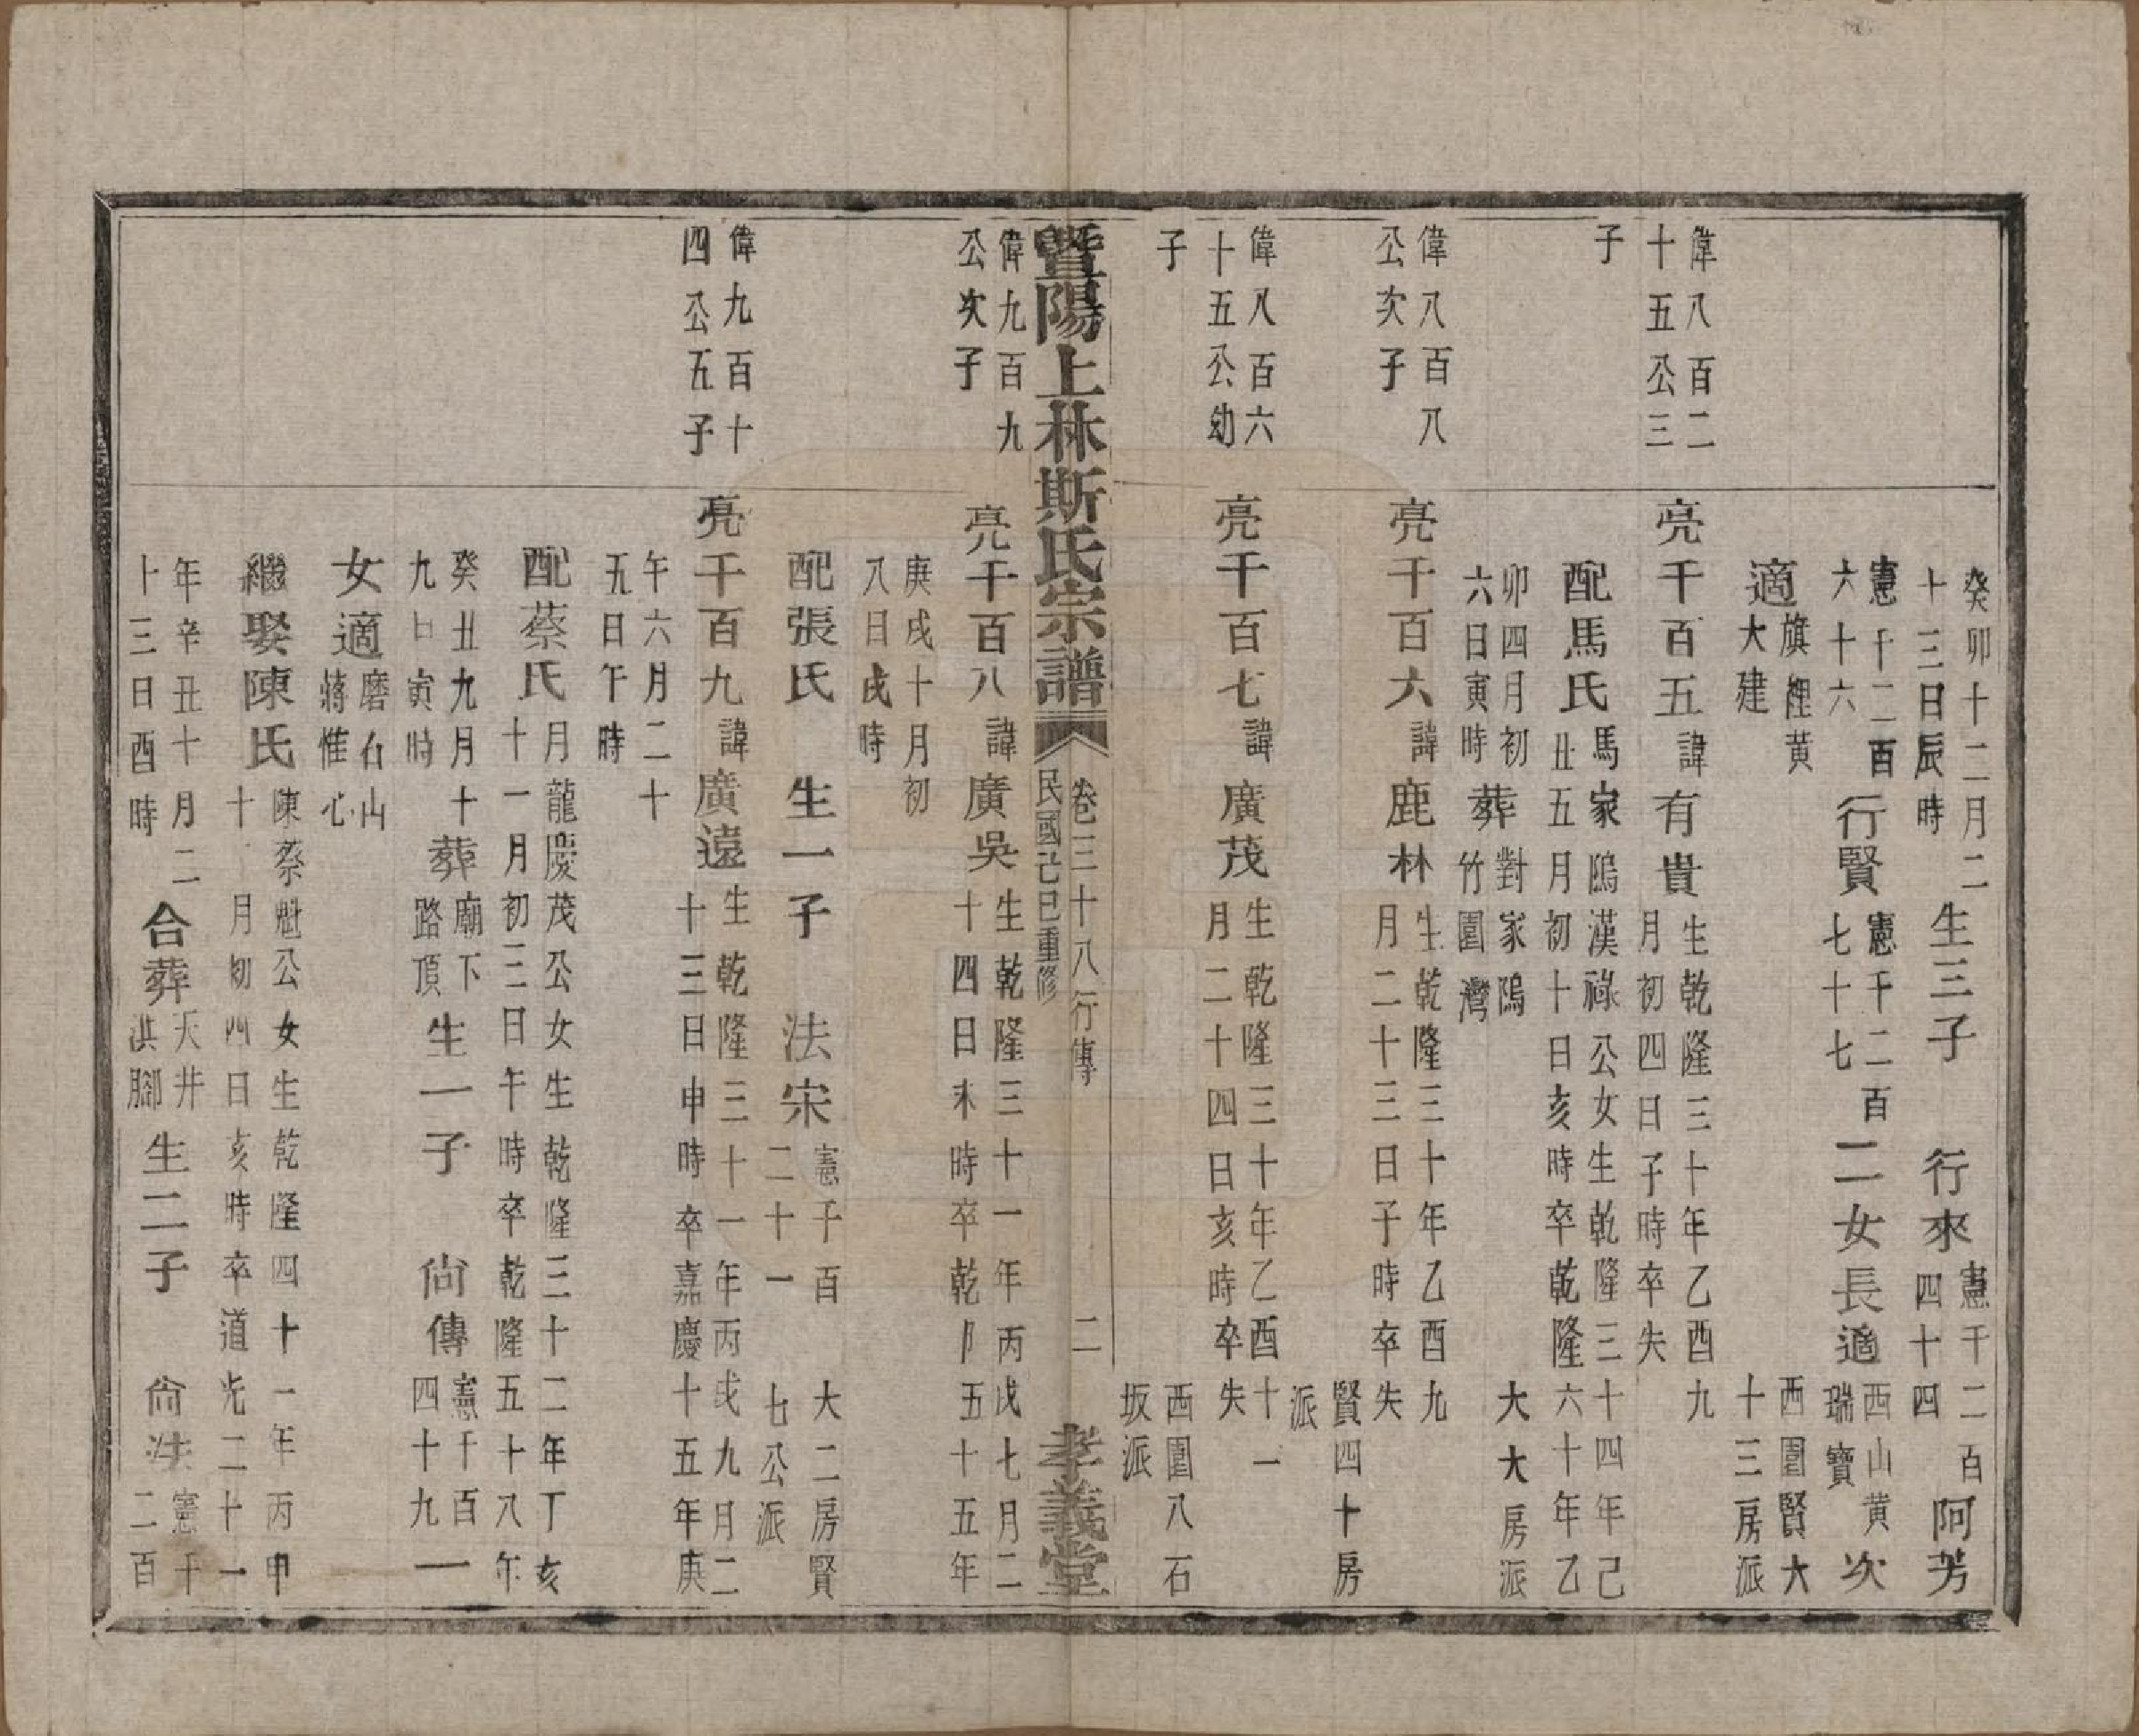 癸卯十二月二
十三日辰時
生三子
行來
憲千二百
四十四
阿芳
憲千二百
六十六
行賢
憲千二百
七十七
二女長適
西山黄
瑞寶
次
適
旗裡黄
大建
西圍賢大
十三房派
偉八百二
十五公三
子
亮千百五
諱
有貴
生乾隆三十年乙酉九
月初四日子時卒失
配馬氏
馬家隖漢祿公女生乾隆三十四年己
丑五月初十日亥時卒乾隆六十年乙
卯四月初
六日寅時
葬
對家隖
竹園灣
大大房派
偉八百八
公次子
亮千百六
諱
鹿林
生乾隆三十年乙酉九
月二十三日子時卒失
賢四十房
派
偉八百六
十五公幼
子
亮千百七
諱
廣茂
生乾隆三十年乙酉十一
月二十四日亥時卒失
西圍八石
坂派
暨陽上林斯氏宗譜
卷三十八行傳
民國己巳重修
二
孝義堂
偉九百九
公次子
亮千百八
諱
廣吳
生乾隆三十一年丙戌七月二
十四日未時卒乾隆五十五年
庚戌十月初
八日戌時
配張氏
生一子
法宋
憲千百
二十一
大二房賢
七公派
偉九百十
四公五子
亮千百九
諱
廣遠
生乾隆三十一年丙戌九月二
十三日申時卒嘉慶十五年庚
午六月二十
五日午時
配蔡氏
月龍慶茂公女生乾隆三十二年丁亥
十一月初三日午時卒乾隆五十八年
癸丑九月十
九日寅時
葬
廟下
路頂
生一子
尙傳
憲千百
四十九
一
女適
磨石山
蔣惟心
繼娶陳氏
陳蔡魁公女生乾隆四十一年丙申
十月初四日亥時卒道光二十一
年辛丑十月二
十三日酉時
合葬
天井
洪腳
生二子
尙法
憲千
二百